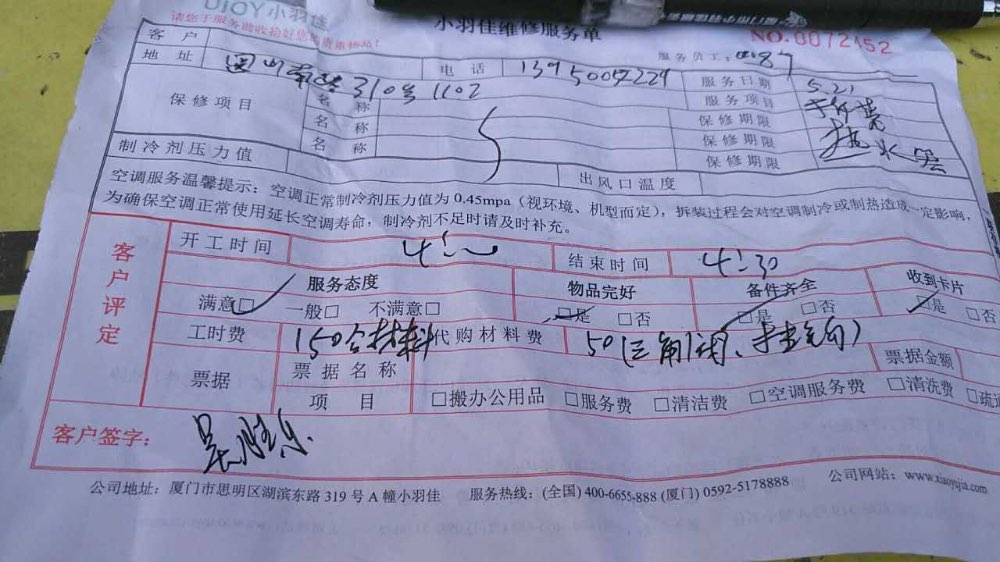 UJOY小羽佳
请您于服务前收拾好您的贵重物品!
小羽佳维修服务单
NO.0072452
客户
服务员工:
地址 310号1102 电话 13950042229 服务日期 5.21
保修项目 名称 服务项目
名称 保修期限
名称 保修期限
保修期限 热水器
制冷剂压力值 出风口温度
空调服务温馨提示:空调正常制冷剂压力值为0.45mpa(视环境、机型而定),拆装过程会对空调制冷或制热造成一定影响,
为确保空调正常使用延长空调寿命,制冷剂不足时请及时补充。
客户评定
开工时间 结束时间 4:30
服务态度 物品完好 备件齐全 收到卡片
满意□ 一般□ 不满意□ □是 □否 □是 □否 □是 □否
工时费 150含材料 代购材料费 50(三角阀、
票据 票据名称 票据金额
项目 □搬办公用品 □服务费 □清洁费 □空调服务费 □清洗费 □疏通
客户签字:
公司地址:厦门市思明区湖滨东路319号A幢小羽佳 服务热线:(全国)400-6655-888 (厦门)0592-5178888 公司网站:www.xiaoyujia.com